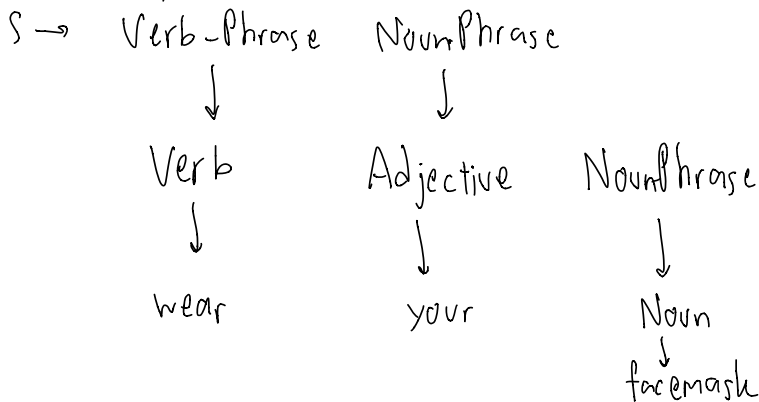 S → Verb-Phrase NounPhrase
Verb Adjective NounPhrase
wear your Noun
facemask